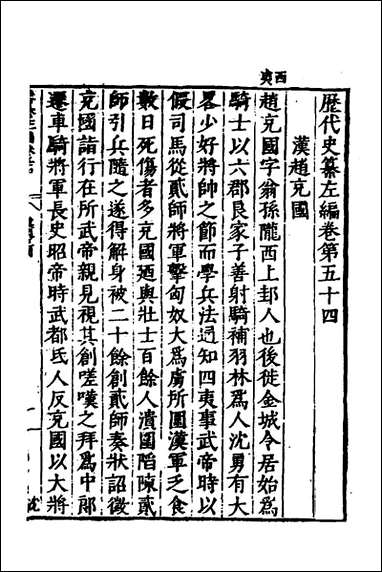 西夷
歷代史纂左編卷第五十四
漢趙充國
趙充國字翁孫隴西上邽人也後徙金城令居始爲
騎士以六郡良家子善射騎補羽林爲人沈勇有大
畧少好將帥之節而學兵法通知四夷事武帝時以
假司馬從貳師將軍擊匈奴大爲虜所圍漢軍乏食
數日死傷者多充國廼與壯士百餘人潰圍陷陳貳
師引兵隨之遂得解身被二十餘創貳師奏狀詔徵
充國詣行在所武帝親見視其創嗟嘆之拜爲中郎
遷車騎將軍長史昭帝時武都氐人反充國以大將